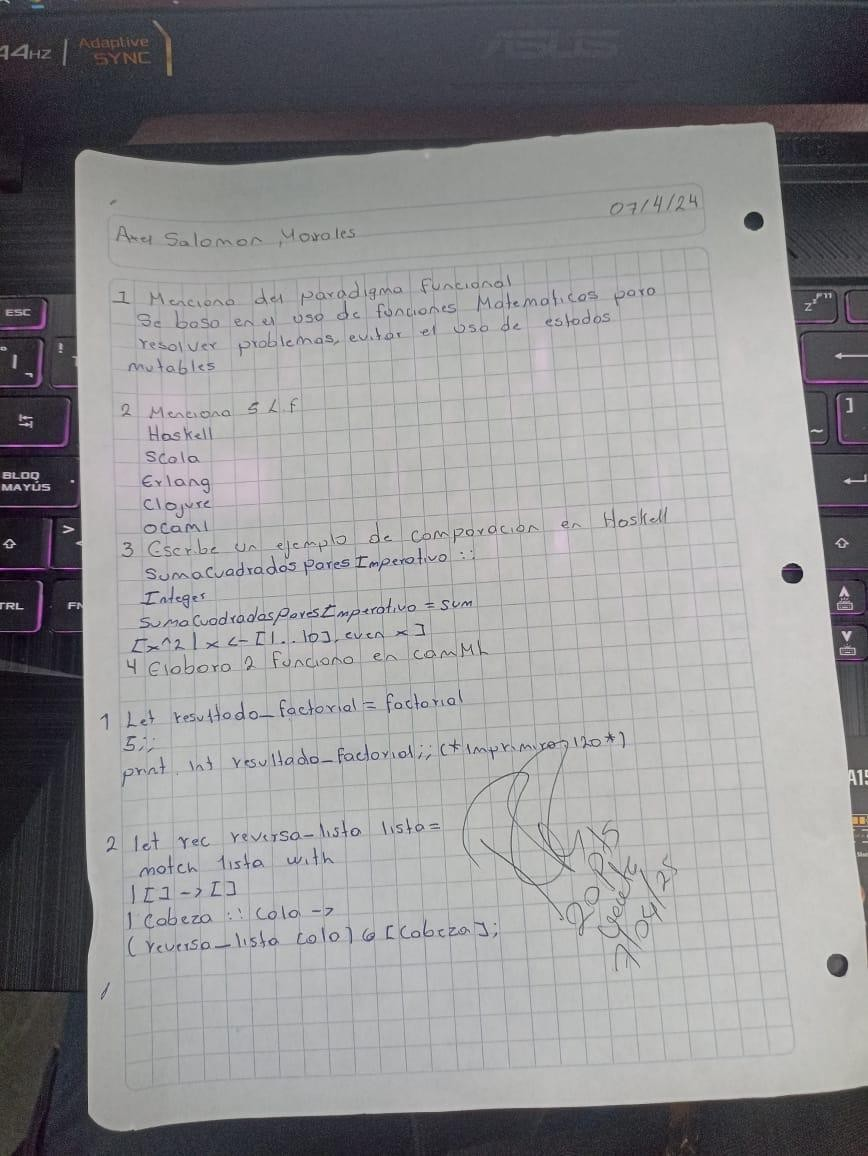 14HZ | Adaptive SYNC
ASUS
07/4/24
Axel Salomon Morales
1 Menciona del paradigma funcional
Se basa en el uso de funciones Matematicas para
resolver problemas, evitar el uso de estados
mutables
2 Menciona 5 L.f
Haskell
Scala
Erlang
Clojure
ocaml
3 Escribe un ejemplo de comparacion en Haskell
SumaCuadradosParesImperativo ::
Integer
SumaCuadradosParesImperativo = sum
[x^2 | x <- [1..10], even x]
4 Elabora 2 funciono en camML
1 Let resultado_factorial = factorial
5;;
print_int resultado_factorial;; (*Imprimire 120*)
2 let rec reversa-lista lista =
match lista with
| [] -> []
| Cabeza :: Cola ->
(reversa_lista cola) @ [Cabeza];
20 Pts
7/04/25
ESC
BLOQ
MAYÚS
TRL
FN
A15